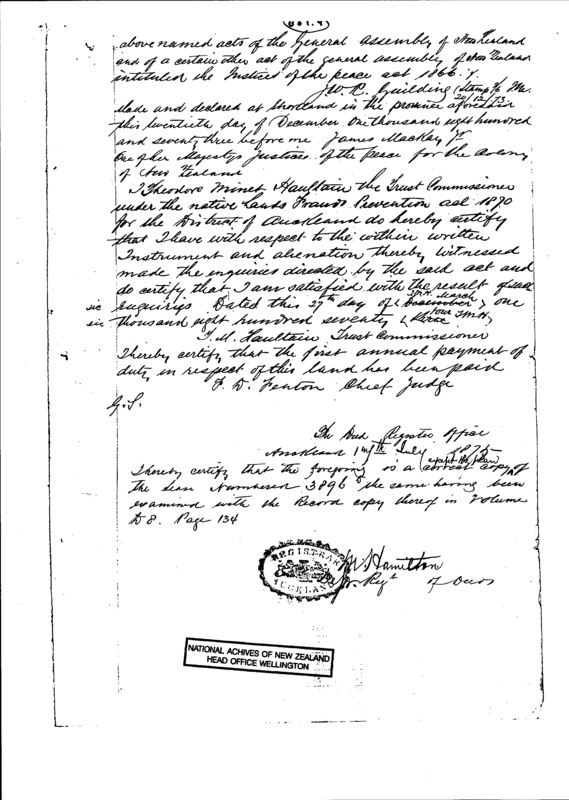 above named acts of the General Assembly of New Zealand
and of a certain other act of the general assembly of New Zealand
intituled the Justices of the peace act 1866.
W. R. Guilding (Stamp
Made and declared at Shortland in the province aforesaid 20/12/73
this twentieth day of December One thousand eight hundred
and seventy three before me James Mackay JP
One of her Majestys Justices of the peace for the Colony
of New Zealand
I Theodore Minet Haultain the Trust Commissioner
under the native Lands Frauds Prevention act 1870
for the District of Auckland do hereby certify
that I have with respect to the within written
Instrument and alienation thereby witnessed
made the enquiries directed by the said act and
do certify that I am satisfied with the result of such
sic enquiries Dated this 27th day of (December) T.M.H. March one
sic thousand eight hundred seventy (three four T.M.H)
T. M. Haultain Trust Commissioner
I hereby certify that the first annual payment of
duty in respect of this land has been paid
F. D. Fenton Chief Judge
G.S.
The Deed Register Office
Auckland July 1875
I hereby certify that the foregoing is a correct copy (except the plan) of
the deed Numbered 3896 the same having been
examined with the Record copy thereof in Volume
D 8. Page 134
REGISTRAR
AUCKLAND
Hamilton
Regt of Deeds
NATIONAL ACHIVES OF NEW ZEALAND
HEAD OFFICE WELLINGTON